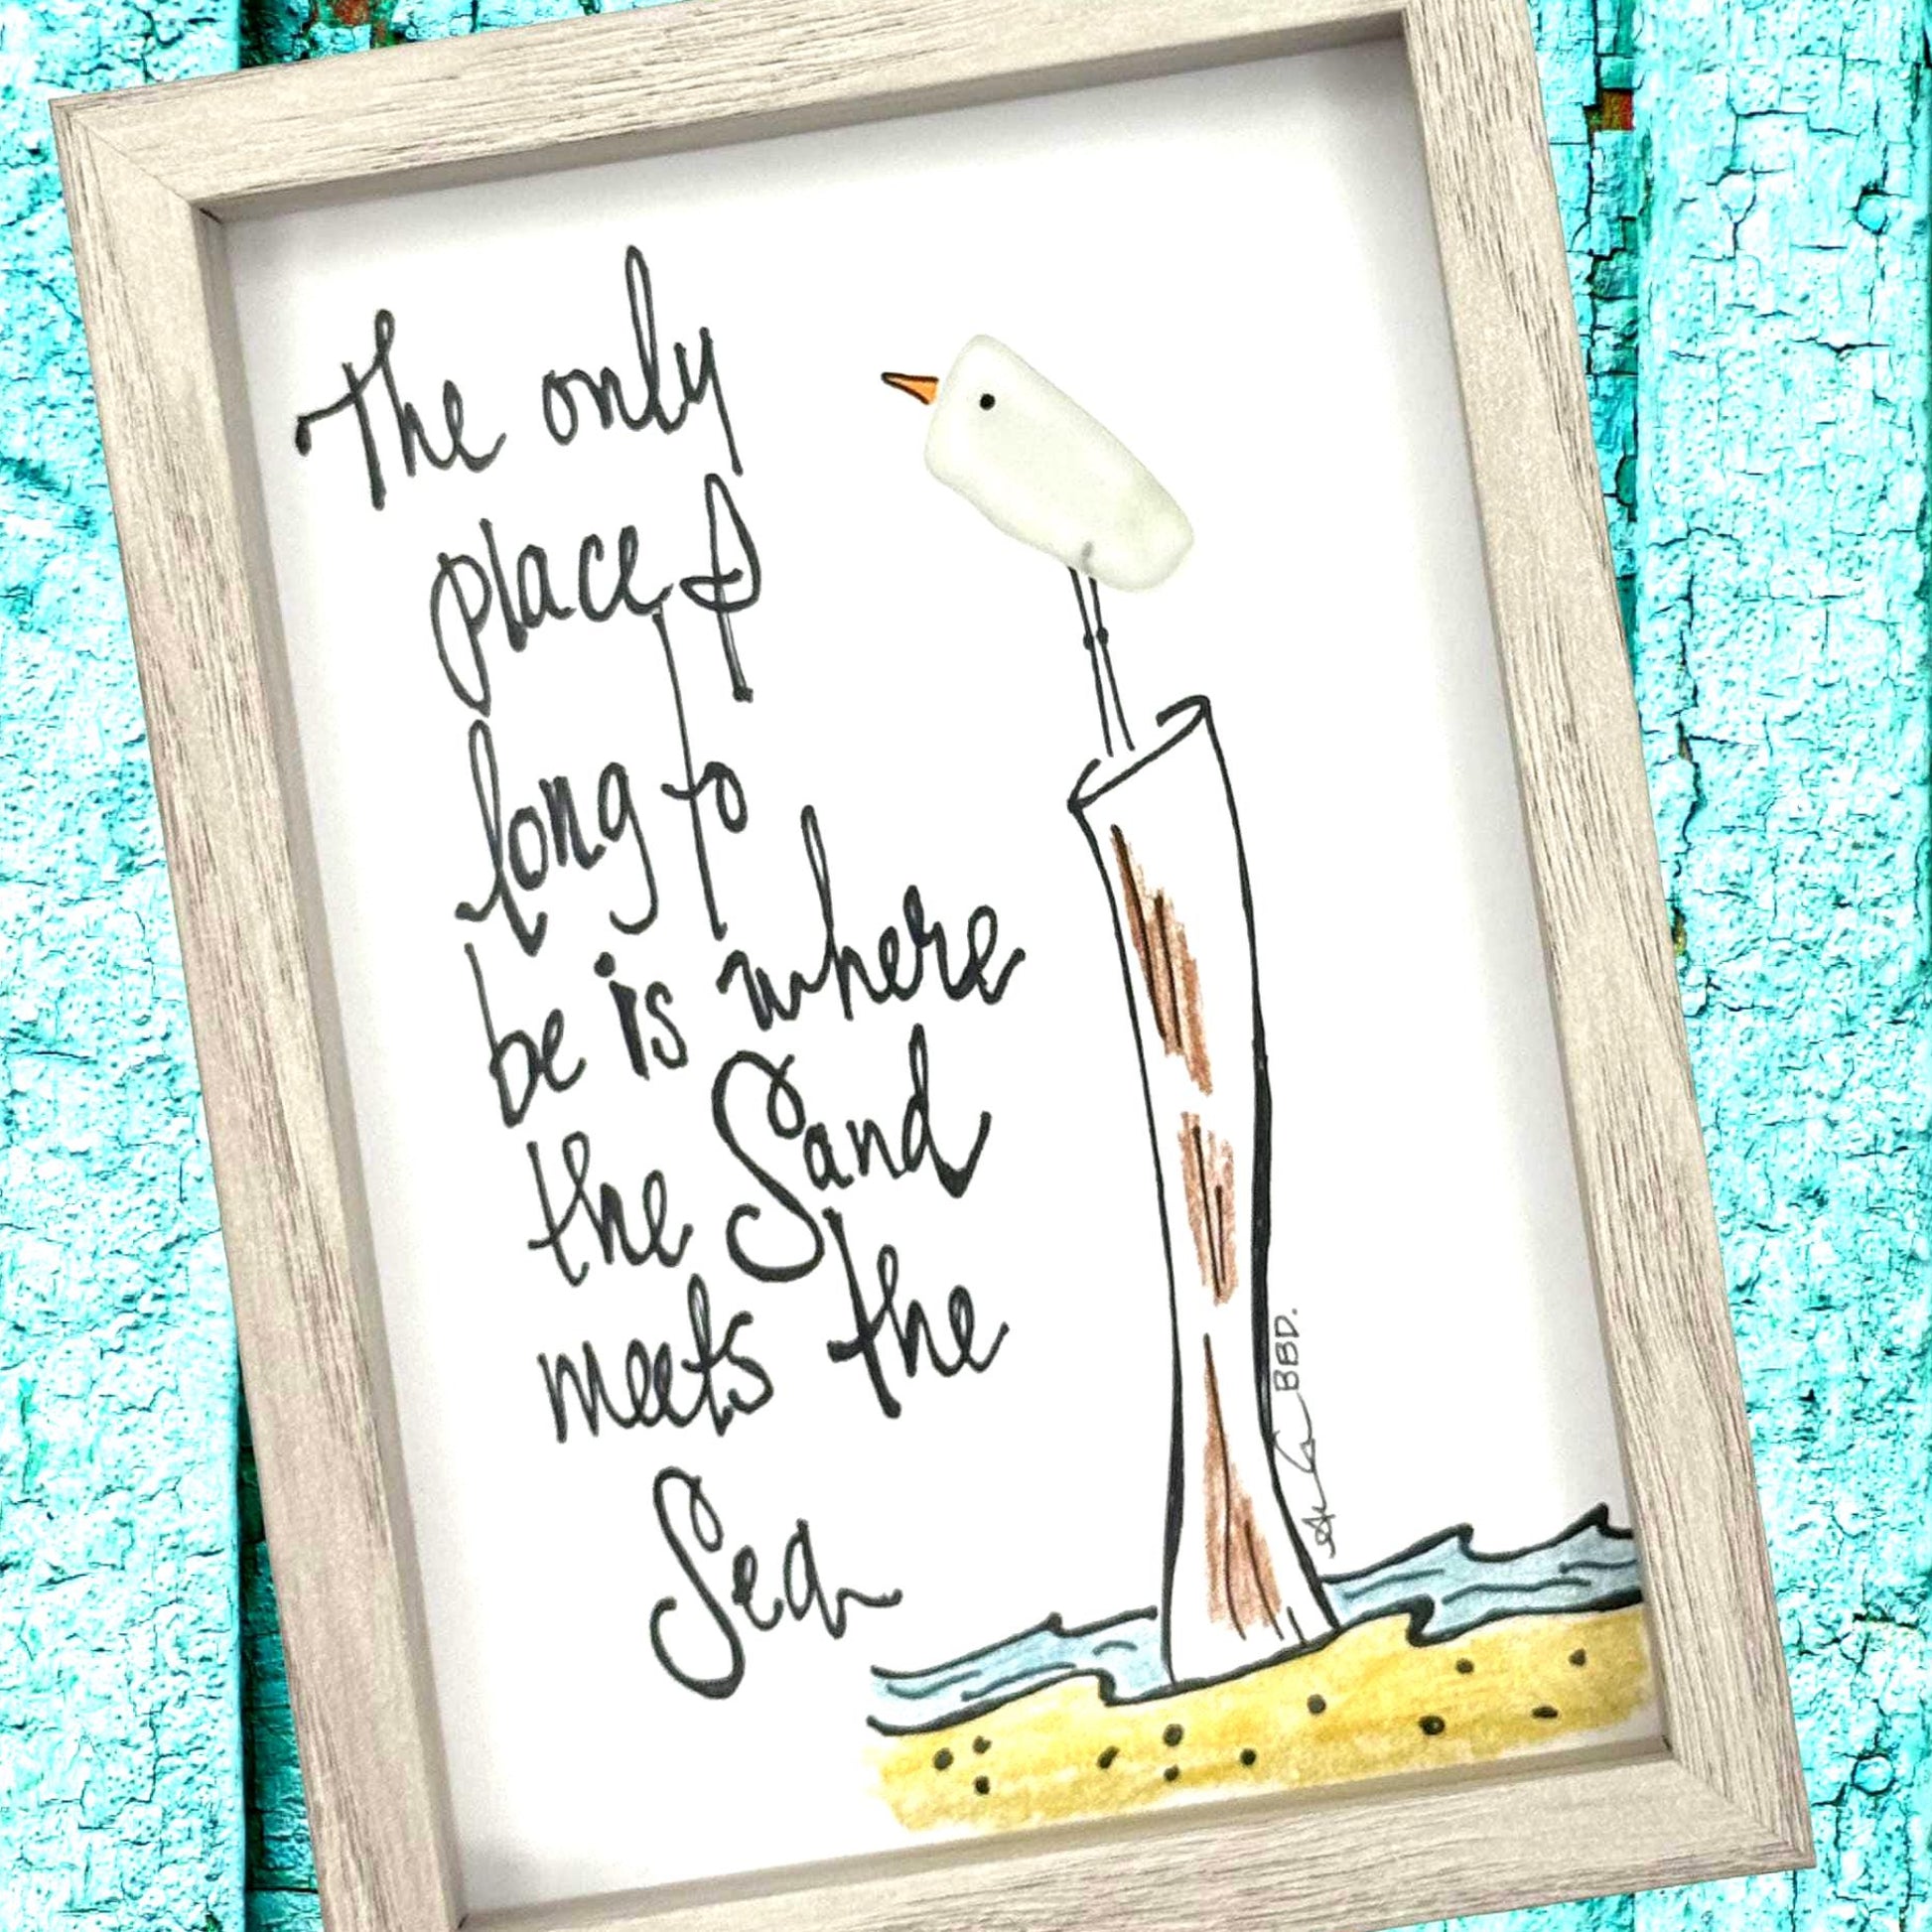 The only
place I
long to
be is where
the Sand
meets the
Sea
BBD.